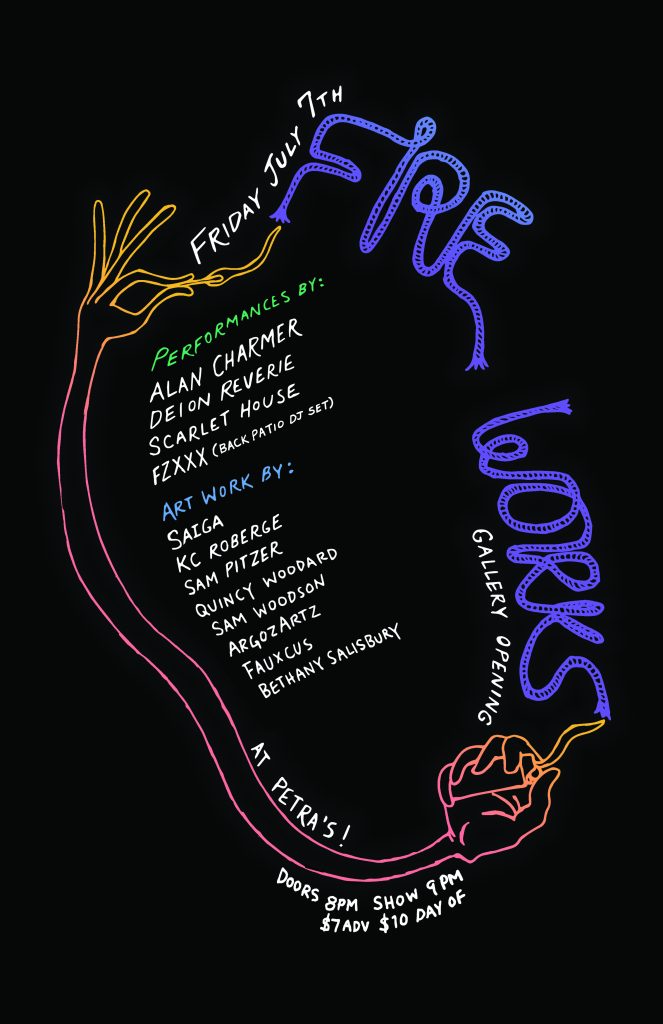 FRIDAY JULY 7TH
FIRE
WORKS
GALLERY OPENING
PERFORMANCES BY:
ALAN CHARMER
DEION REVERIE
SCARLET HOUSE
FZXXX (BACK PATIO DJ SET)
ART WORK BY:
SAIGA
KC ROBERGE
SAM PITZER
QUINCY WOODARD
SAM WOODSON
ARGOZARTZ
FAUXCUS
BETHANY SALISBURY
AT PETRA'S!
DOORS 8PM SHOW 9PM
$7 ADV $10 DAY OF